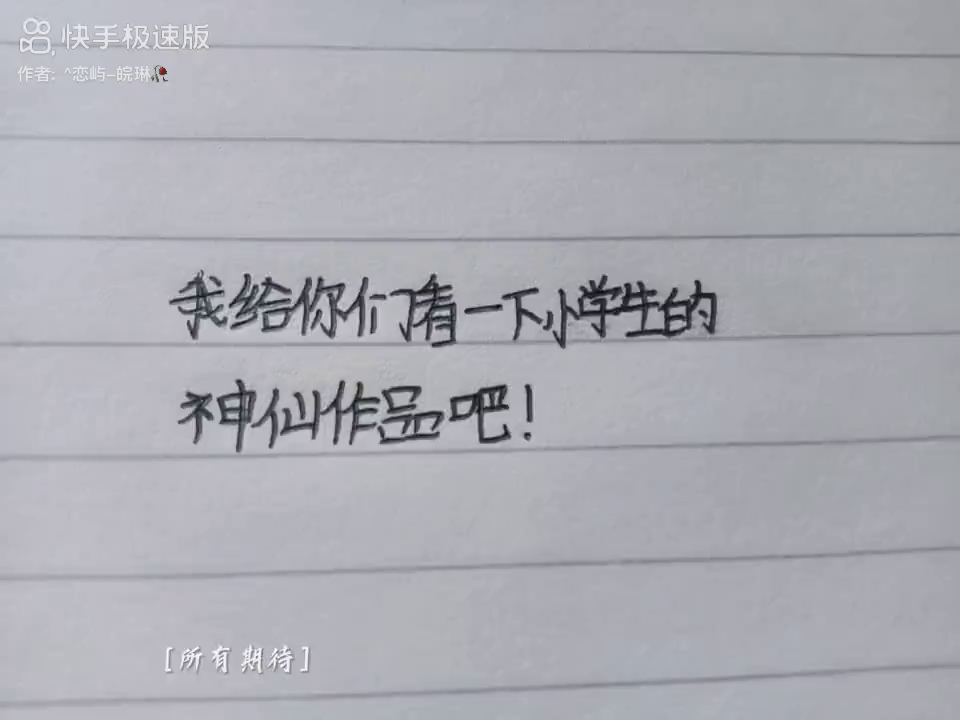 快手极速版
作者: ^恋屿-皖琳
我给你们看一下小学生的
神仙作品吧!
[所有期待]